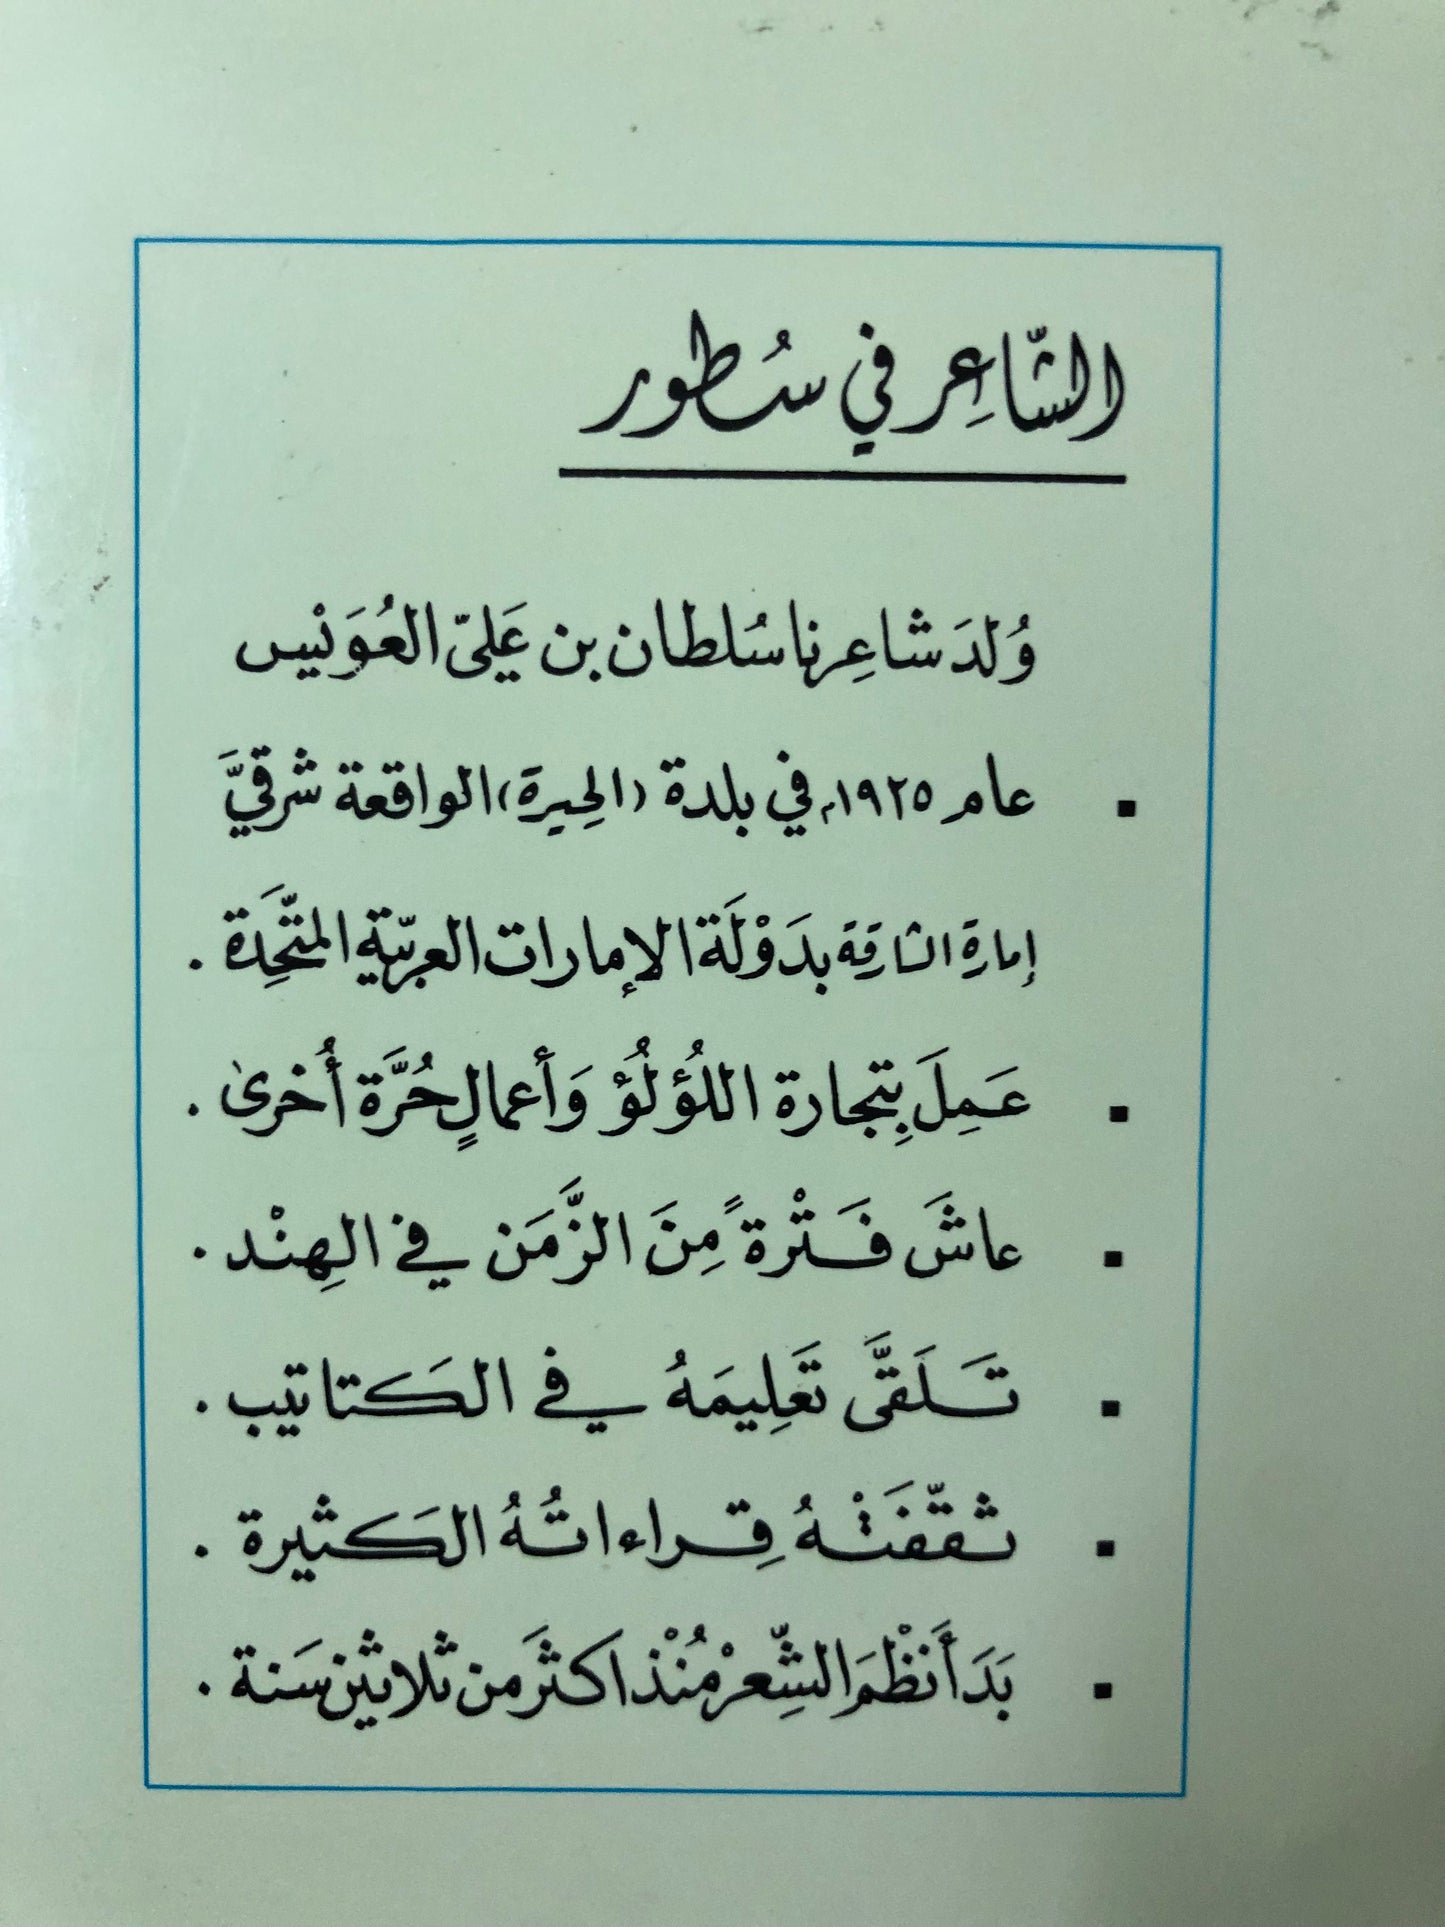 الشّاعِر في سُطور
وُلدَ شاعِرنا سُلطان بن عَليّ العُوَيْس
▪ عام ١٩٢٥م في بلدة (الحِيرَة) الواقعة شرقيَّ
إمارة الشارقة بدَوْلَة الإمارات العربيّة المتّحِدَة .
▪ عَمِلَ بِتجارة اللُؤلُؤ وَأعمالٍ حُرَّة أُخرىٰ .
▪ عاشَ فَتْرة ً مِنَ الزَّمَن في الهِنْد .
▪ تَلَقَّى تَعلِيمَهُ في الكَتاتيب .
▪ ثقّفَتْهُ قِراءاتُهُ الكَثيرة .
▪ بَدَأَ نَظْمَ الشِّعرْ مُنْذ اكثَر من ثلاثين سَنة .